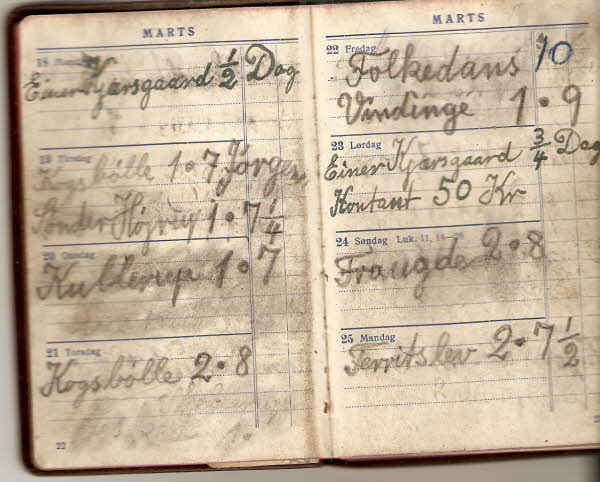 MARTS
18 Mandag
Einer Kjærsgaard 1/2 Dag
19 Tirsdag
1•7 Jørgen
Sønder Højrup 1•7 1/4
20 Onsdag
1•7
21 Torsdag
Kogsbølle 2•8
22
MARTS
22 Fredag
Folkedans 10
Vindinge 1•9
23 Lørdag
Einer Kjærsgaard 3/4 Dag
Kontant 50 Kr
24 Søndag Luk. 11, 14-28
Fraugde 2•8
25 Mandag
Ferritslev 2•7 1/2